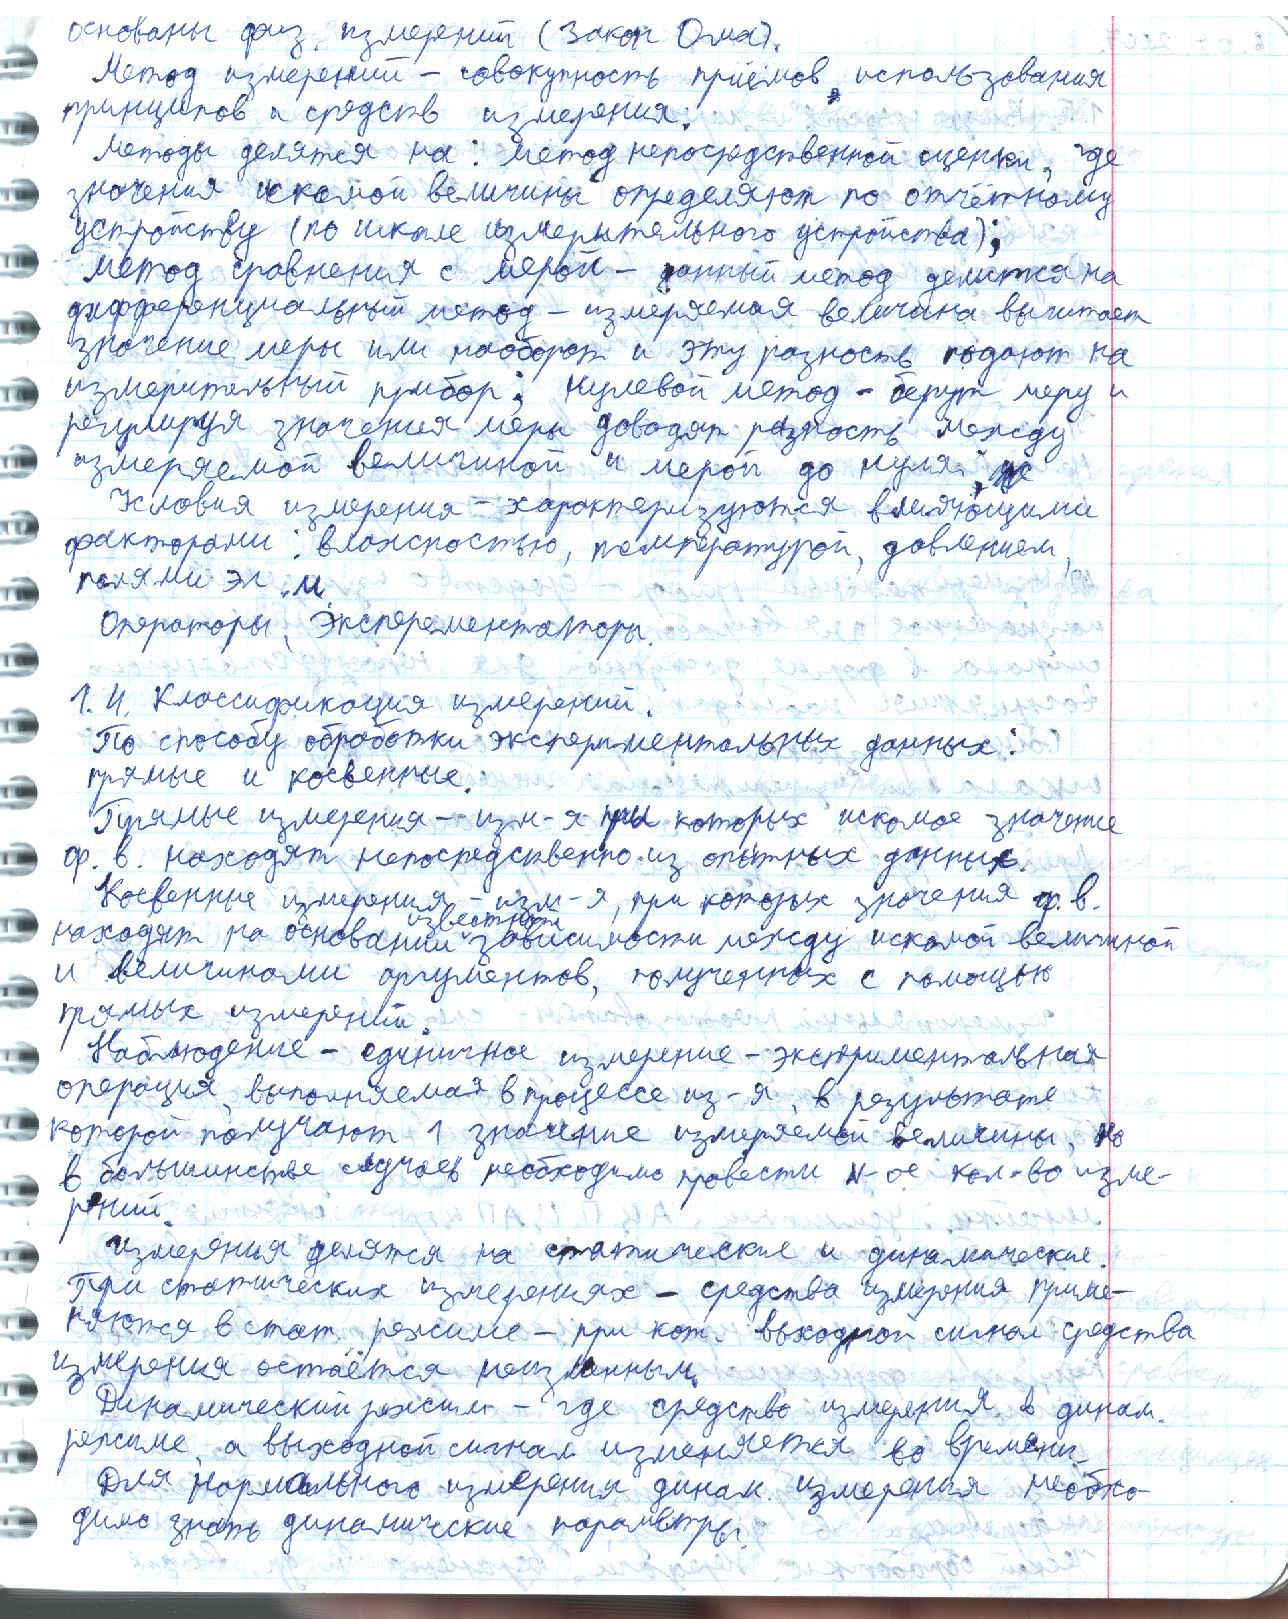 основаны физ. измерений (Закон Ома).
Метод измерений – совокупность приёмов, использования
принципов и средств измерения.
Методы делятся на: метод непосредственной оценки, где
значения искомой величины определяют по отчётному
устройству (по шкале измерительного устройства);
метод сравнения с мерой – данный метод делится на
дифференциальный метод – измеряемая величина вычитает
значение меры или наоборот и эту разность подают на
измерительный прибор; нулевой метод – берут меру и
регулируя значения меры доводят разность между
измеряемой величиной и мерой до нуля;
Условия измерения – характеризуются влияющими
факторами: влажностью, температурой, давлением,
полями эл. м.
Операторы, Эксперементаторы.
1.4. Классификация измерений.
По способу обработки экспериментальных данных:
прямые и косвенные.
Прямые измерения – изм-я при которых искомое значение
ф.в. находят непосредственно из опытных данных.
Косвенные измерения – изм-я, при которых значения ф.в.
находят на основании известной зависимости между искомой величиной
и величинами аргументов, полученных с помощью
прямых измерений.
Наблюдение – единичное измерение – экспериментальная
операция, выполняемая в процессе из-я, в результате
которой получают 1 значение измеряемой величины, но
в большинстве случаев необходимо провести N-ое кол-во изме-
рений.
Измерения делятся на статические и динамические.
При статических измерениях – средства измерения приме-
няются в стат. режиме – при кот. выходной сигнал средства
измерения остаётся неизменным.
Динамический режим – где средство измерения в динам.
режиме, а выходной сигнал изменяется во времени.
Для нормального измерения динам. измерения необхо-
димо знать динамические параметры.